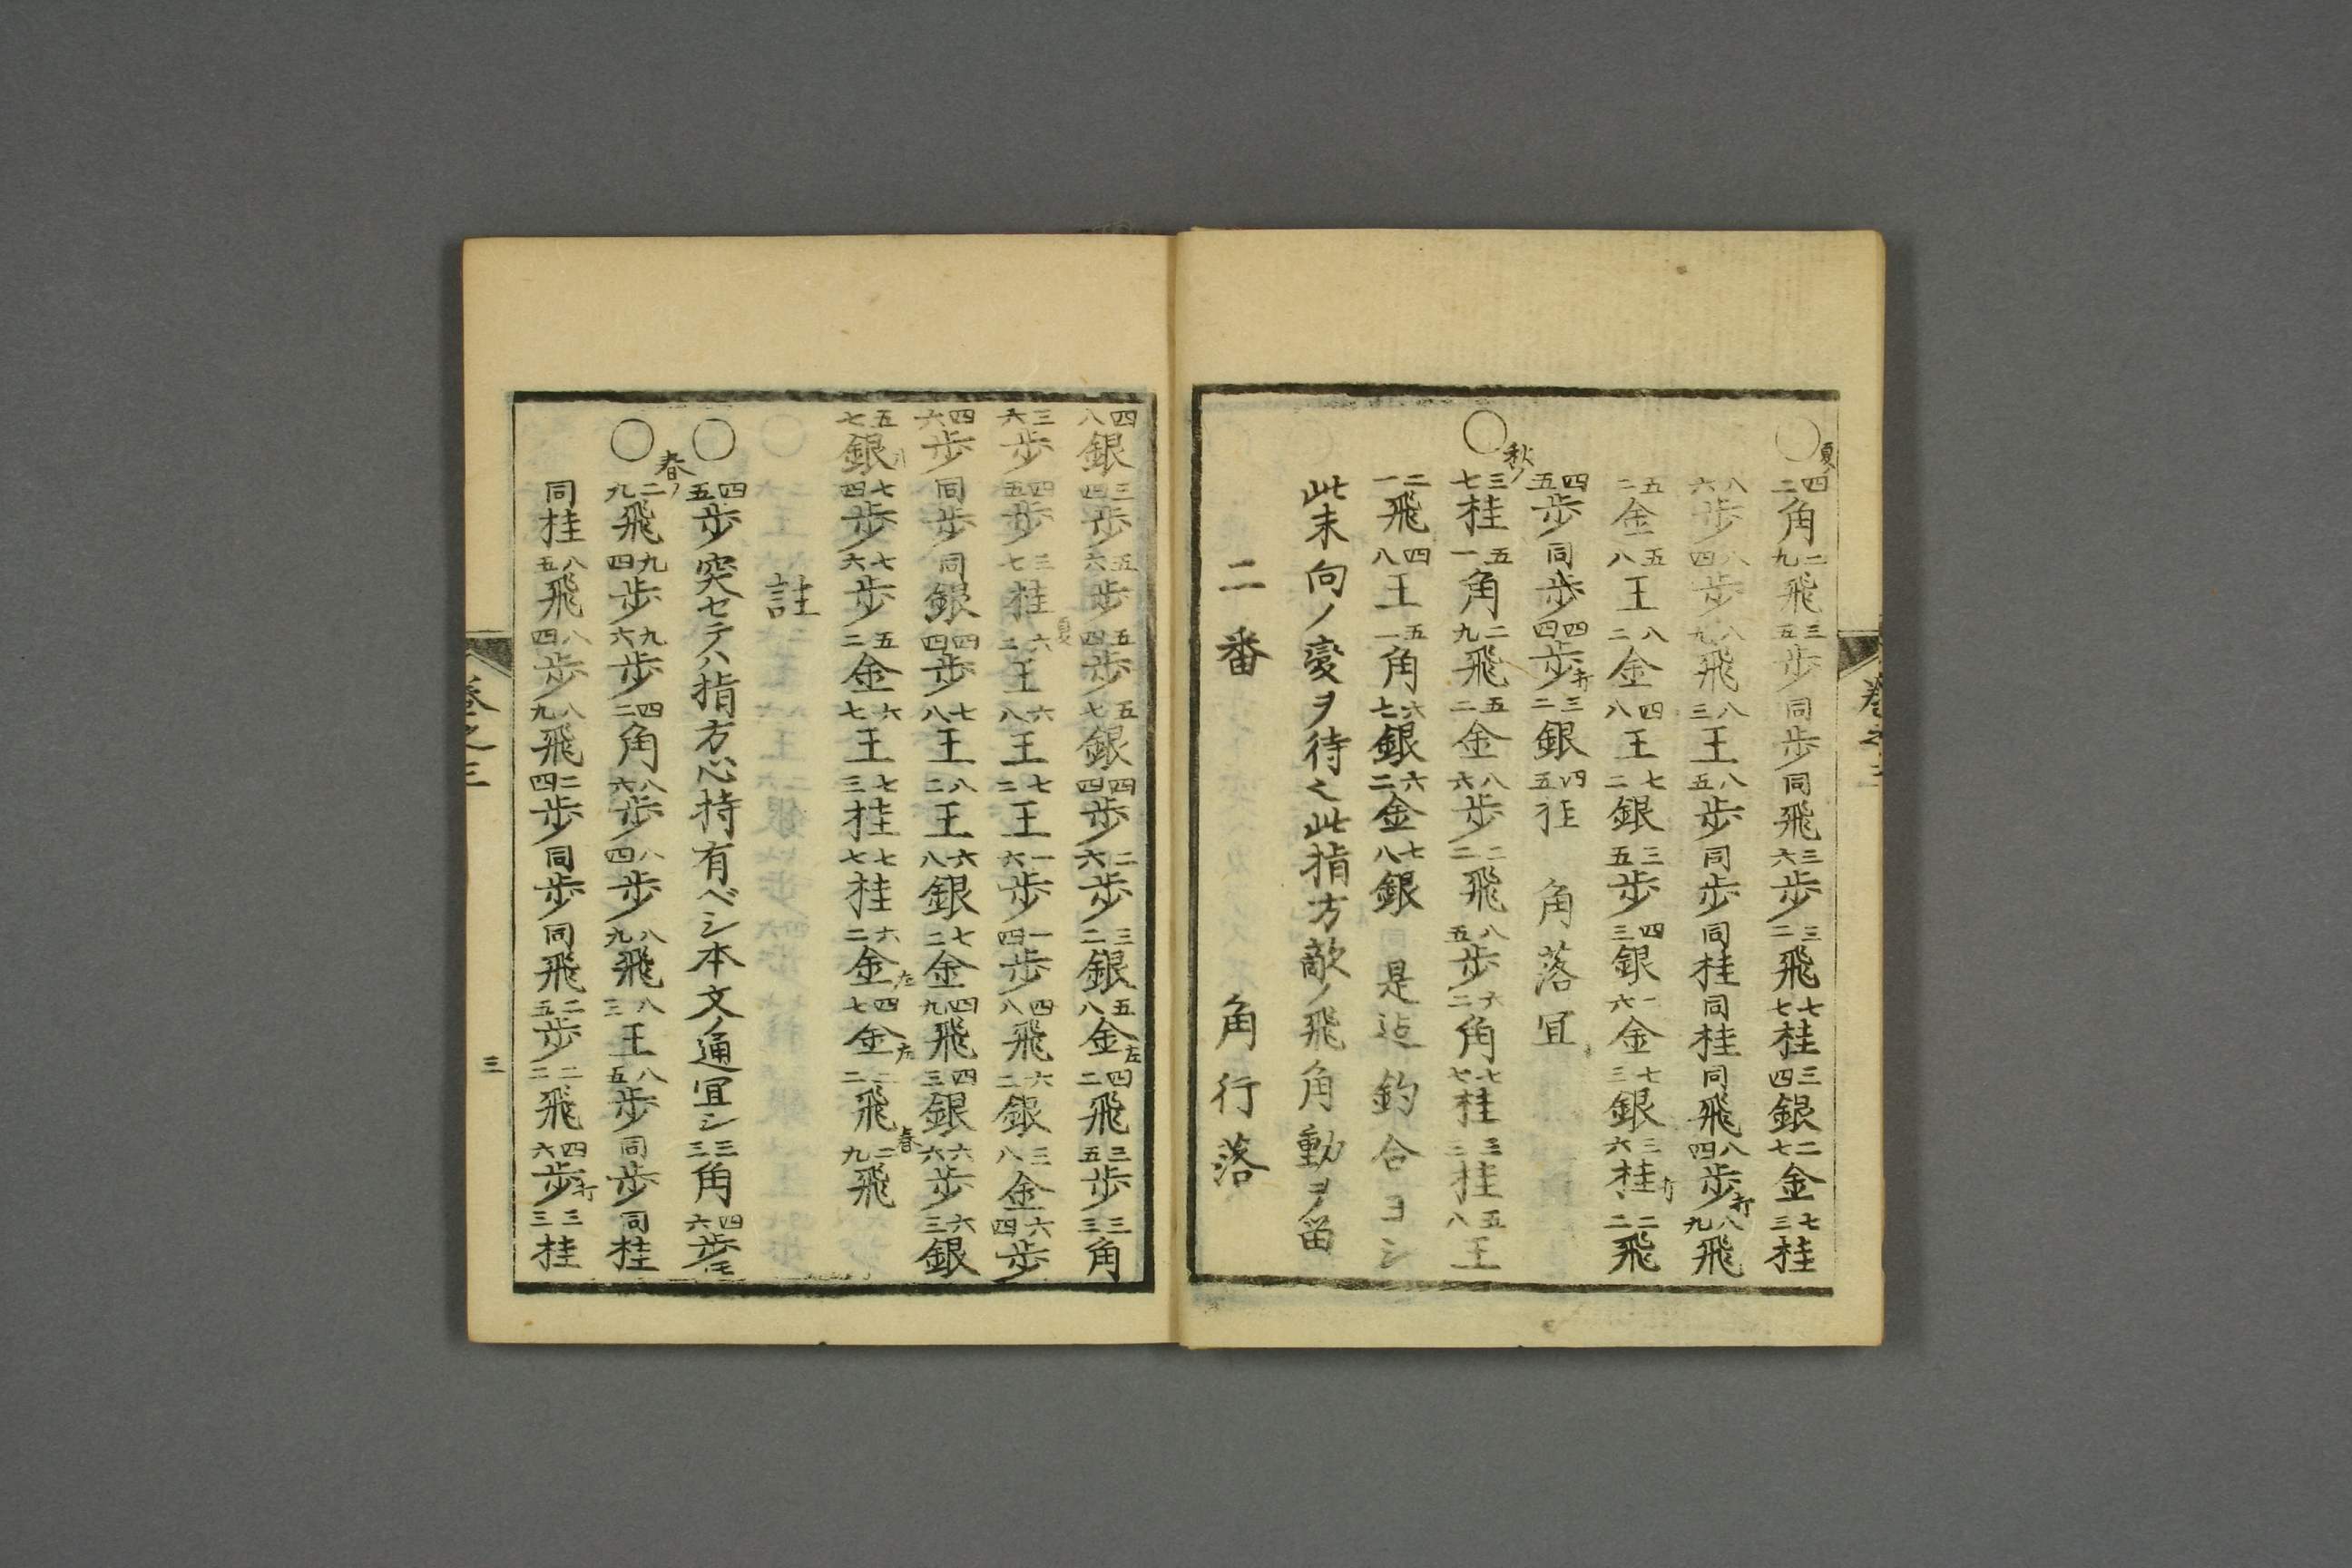 ○夏ノ 四二角 二九飛 三五歩 同歩 同飛 三六歩 三二飛 七七桂 三四銀 二七金 七三桂
八六歩 八四歩 八九飛 八三王 八五歩 同歩 同桂 同桂 同飛 八四歩打 八九飛
五二金 五八王 八二金 四八王 七二銀 三五歩 四三銀 一六金 七三銀 三六桂打 二二飛
四五歩 同歩 四四歩打 三二銀 四五桂 角落冝
○秋ノ 三七桂 五一角 二九飛 五二金 八六歩 二二飛 八五歩 六二角 七七桂 三三桂 五八王
二一飛 四八王 五一角 六七銀 六二金 七八銀 是迠釣合ヨシ
此末向ノ変ヲ待之此指方敵ノ飛角動ヲ留
二番 角行落
四八銀 三四歩 五六歩 五四歩 五七銀 四四歩 二六歩 三二銀 五八金左 四二飛 三五歩 三三角
三六歩 四五歩 三七桂 夏 六二王 六八王 七二王 一六歩 一四歩 四八飛 六二銀 三八金 六四歩
四六歩 同歩 同銀 四四歩 七八王 八二王 六八銀 七二金 四九飛 四三銀 六六歩 六三銀
五七銀 七四歩 七六歩 五二金 六七王 七三桂 七七桂 六二金左 四七金左 二二飛 春 二九飛
註
○四五歩突セテハ指方心持有ベシ本文ノ通冝シ三三角 四六歩モ
○春ノ 二九飛 九四歩 九六歩 四二角 八六歩 八四歩 八九飛 八三王 八五歩 同歩 同桂
同桂 八五飛 八四歩 八九飛 二四歩 同歩 同飛 二五歩 二二飛 四六歩打 三三桂
卷之三
三